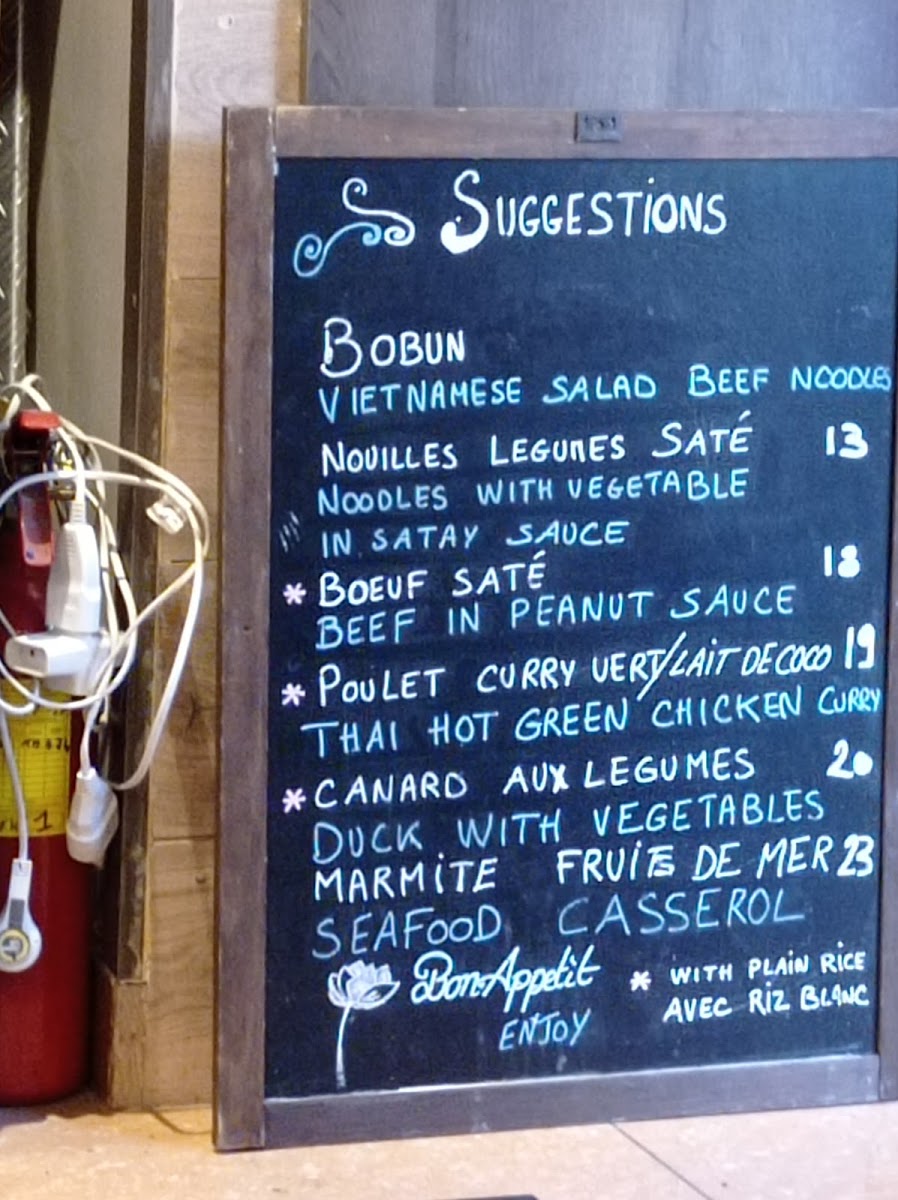 SUGGESTIONS
BOBUN
VIETNAMESE SALAD BEEF NOODLES
NOUILLES LEGUMES SATÉ 13
NOODLES WITH VEGETABLE
IN SATAY SAUCE
* BOEUF SATÉ 18
BEEF IN PEANUT SAUCE
* POULET CURRY VERT/LAIT DE COCO 19
THAI HOT GREEN CHICKEN CURRY
* CANARD AUX LEGUMES 20
DUCK WITH VEGETABLES
MARMITE FRUITS DE MER 23
SEAFOOD CASSEROL
Bon Appetit
ENJOY
* WITH PLAIN RICE
AVEC RIZ BLANC
1